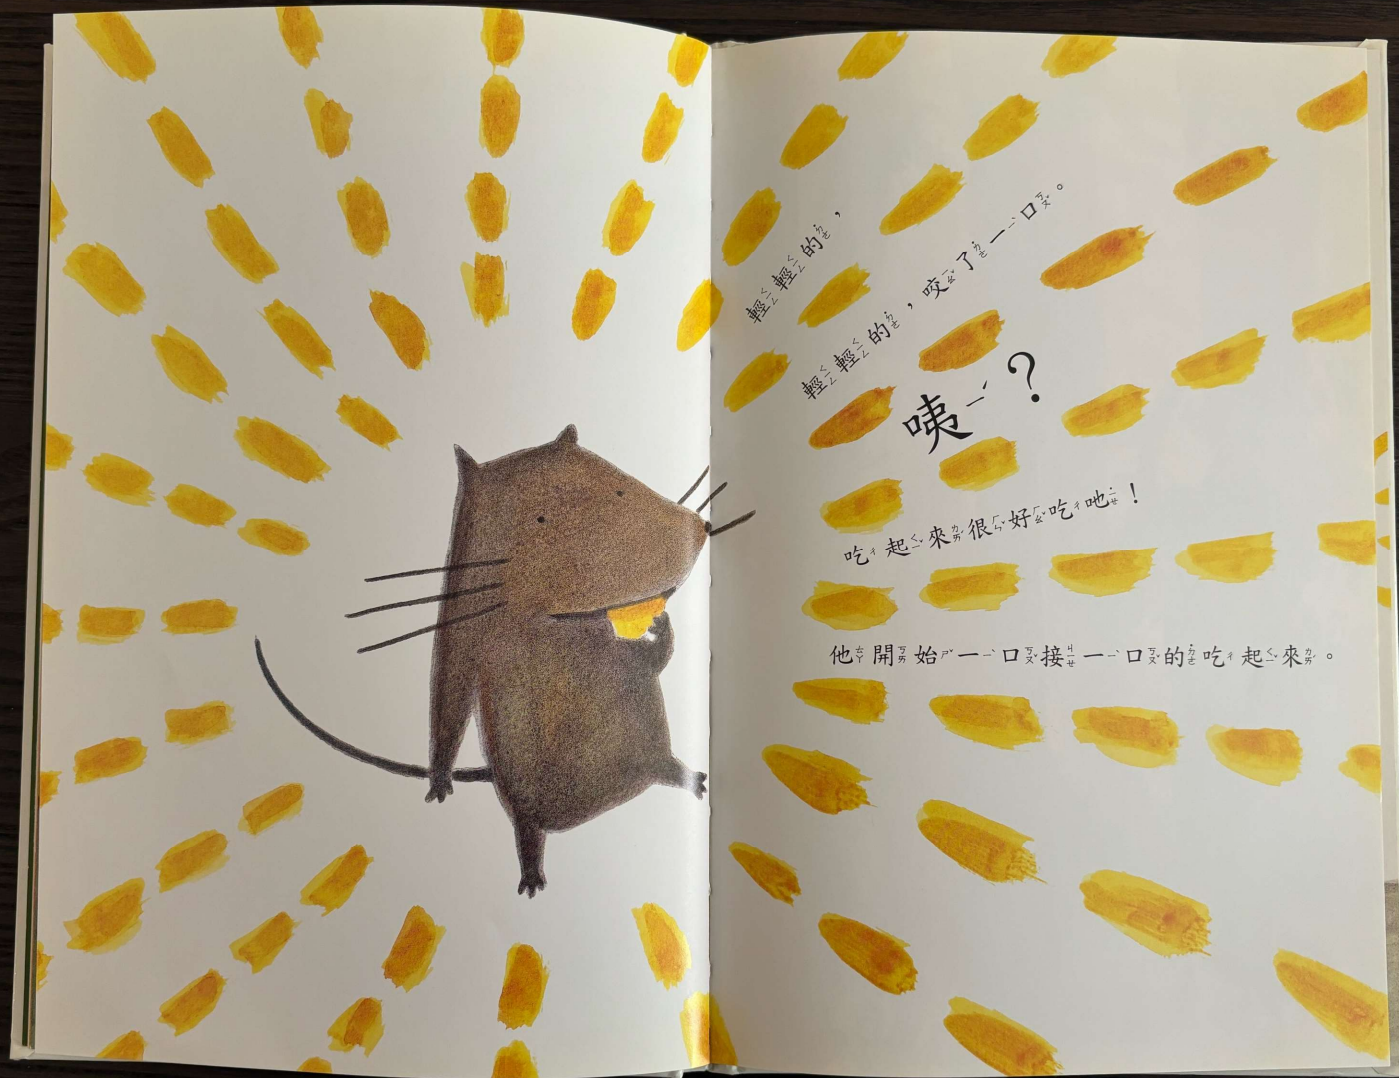 輕輕的，
輕輕的，咬了一口。
咦？
吃起來很好吃吔！
他開始一口接一口的吃起來。